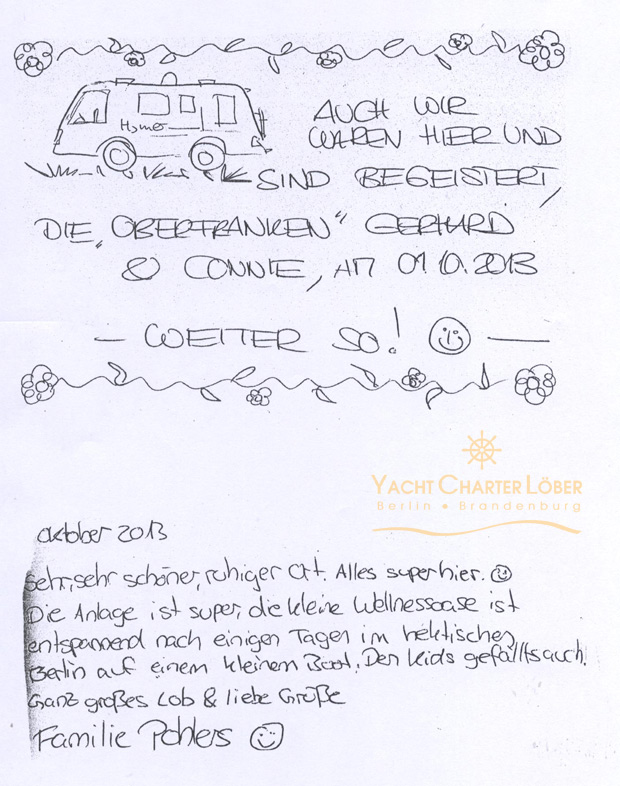 Home
AUCH WIR
WAREN HIER UND
SIND BEGEISTERT,
DIE „OBERFRANKEN“ GERHARD
& CONNIE, AM 01.10.2013
— WEITER SO! —
YACHT CHARTER LÖBER
Berlin • Brandenburg
Oktober 2013
Sehr, sehr schöner, ruhiger Ort. Alles super hier.
Die Anlage ist super, die kleine Wellnessoase ist
entspannend nach einigen Tagen im hektischen
Berlin auf einem kleinem Boot. Den Kids gefällts auch.
Ganz großes Lob & liebe Grüße
Familie Pohlers